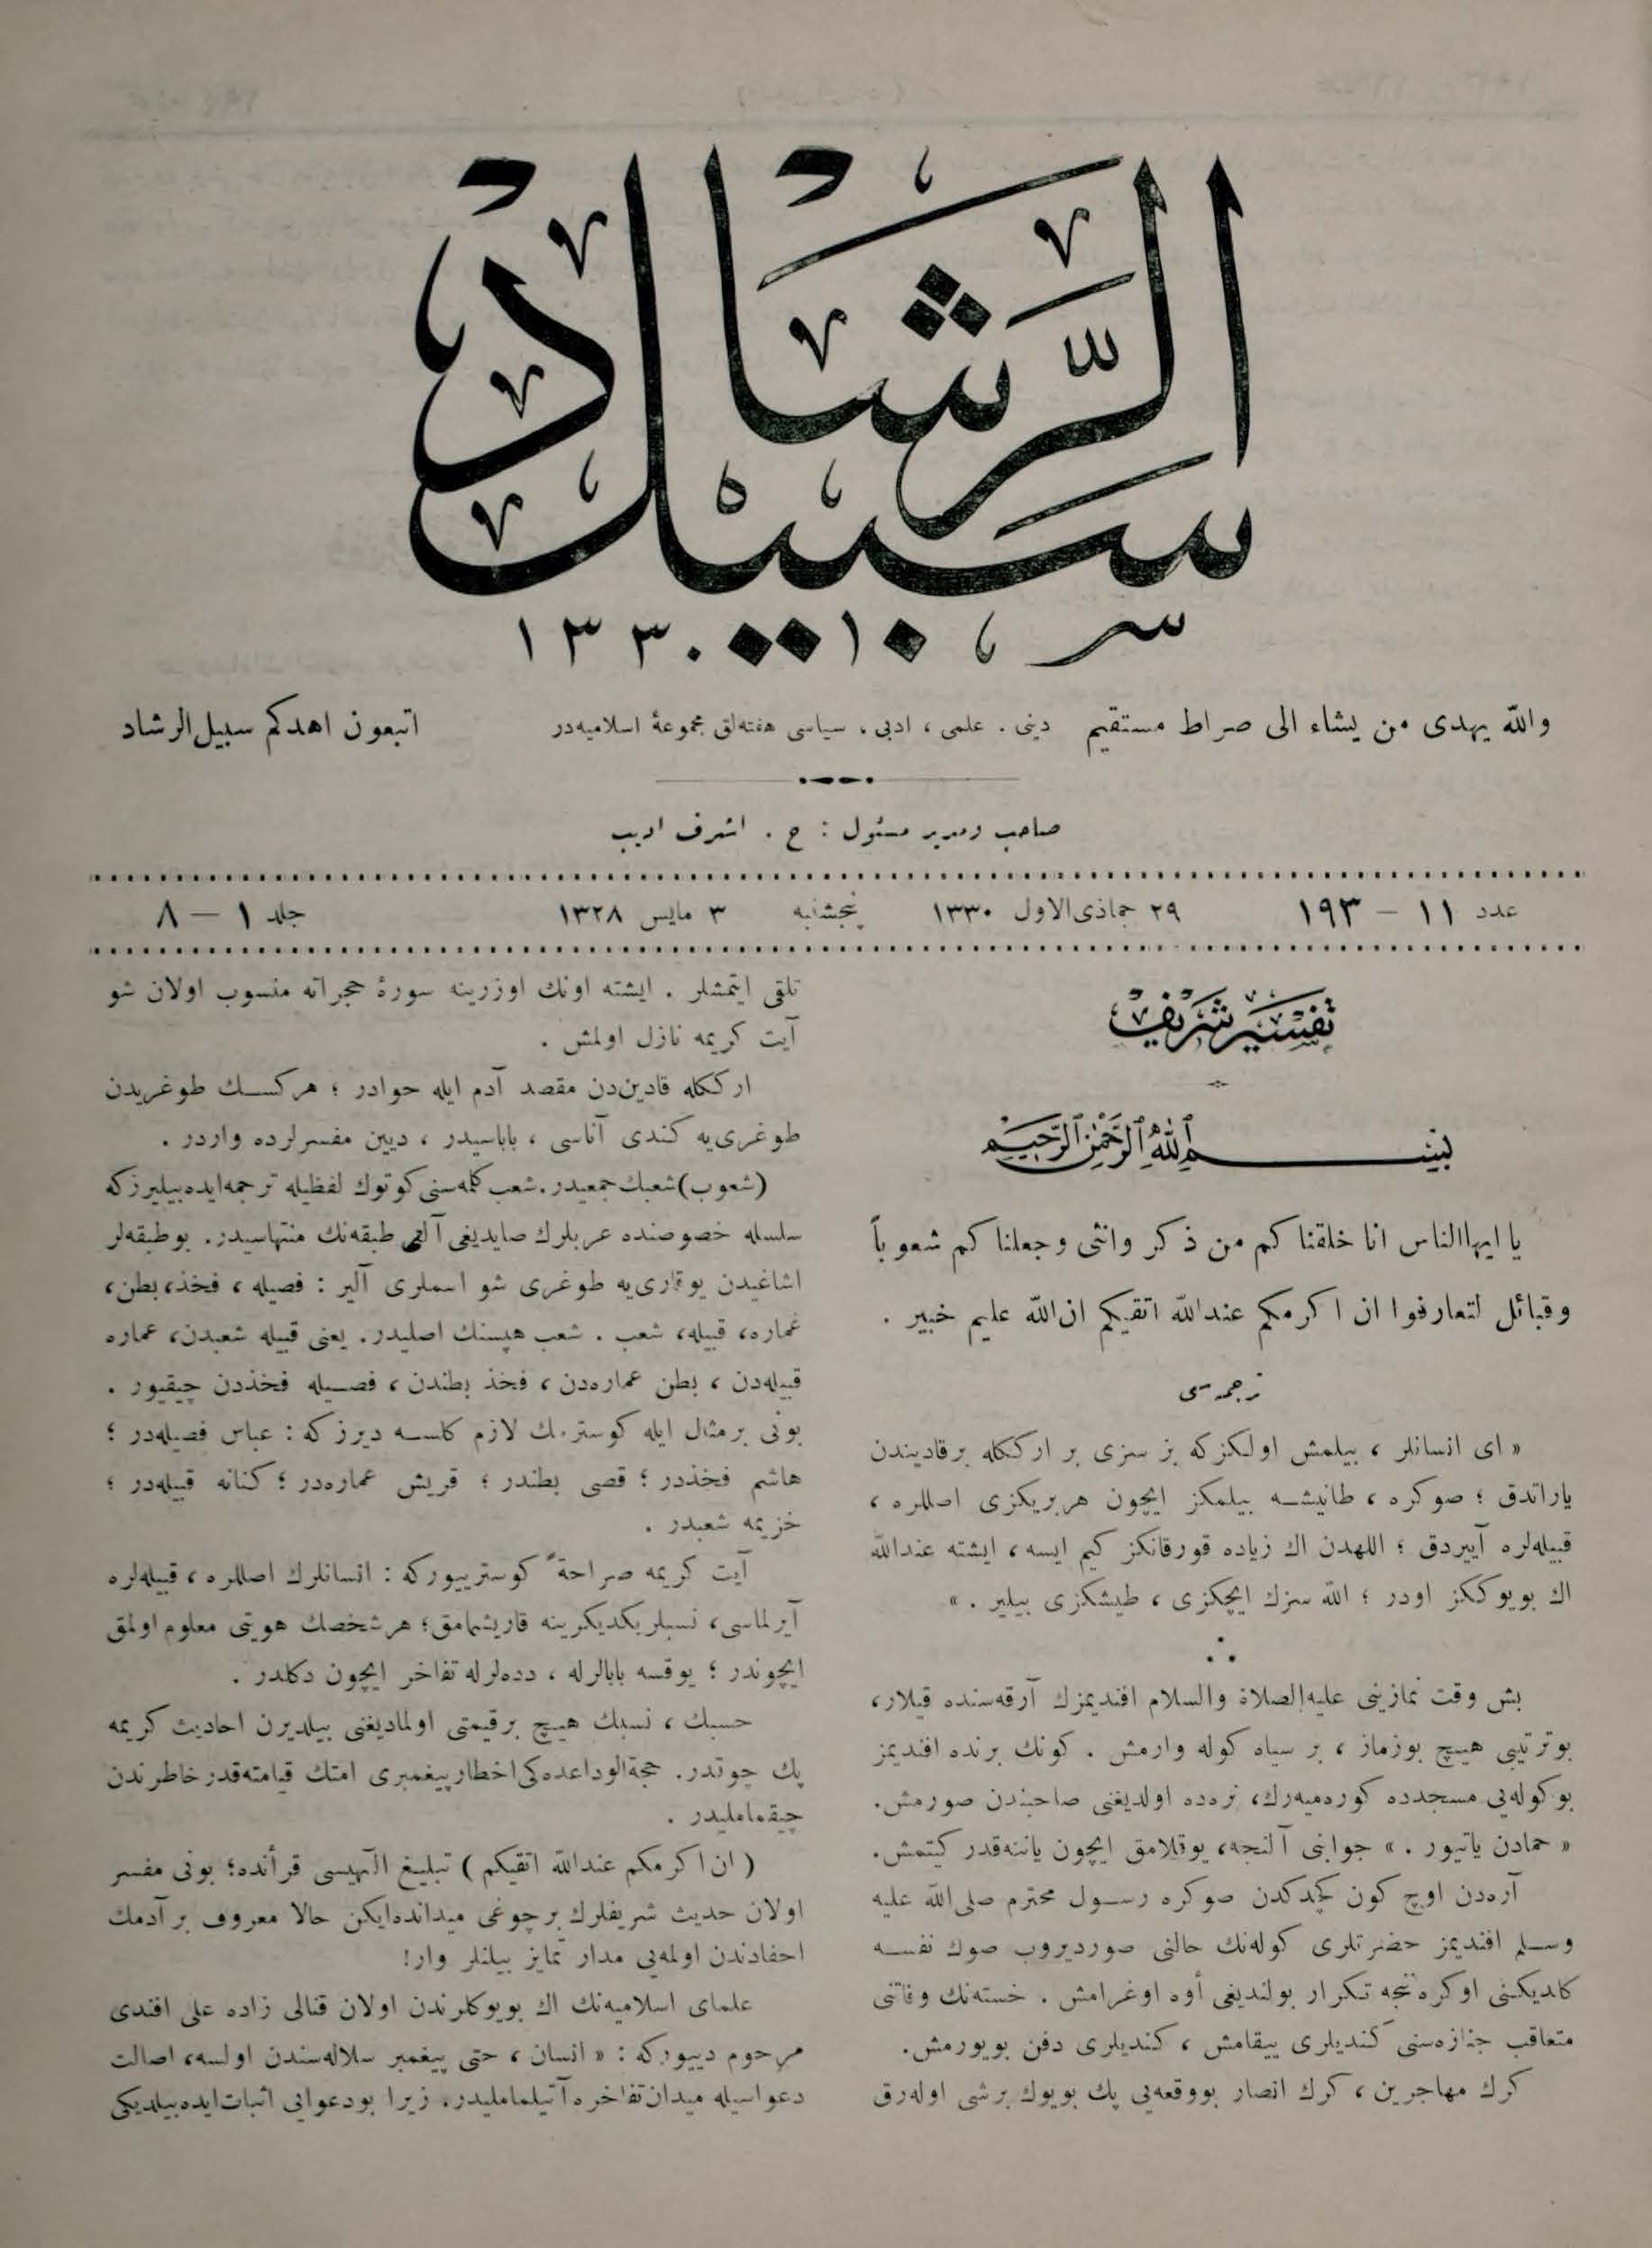 سبيل الرشاد
١٣٣٠
والله يهدى من يشاء الى صراط مستقيم
دينى ، علمى ، ادبى ، سياسى هفته‌لق مجموعۀ اسلاميه‌در
اتبعون اهدكم سبيل الرشاد
صاحب و مدير مسئول : ح . اشرف اديب
عدد ١١ — ١٩٣
٢٩ جماذى الاول ١٣٣٠
پنجشنبه
٣ مايس ١٣٢٨
جلد ١ — ٨
تفسير شريف
بسم الله الرحمن الرحيم
يا ايها الناس انا خلقنا كم من ذكر وانثى وجعلنا كم شعوباً
وقبائل لتعارفوا ان اكرمكم عندالله اتقيكم ان الله عليم خبير .
ترجمه سى
« اى انسانلر ، بيلمش اولكزكه بز سزى بر ارككله برقاديندن
ياراتدق ؛ صوكره ، طانيشه بيلمكز ايچون هربريكزى اصللره ،
قبيله‌لره آييردق ؛ اللهدن اك زياده قورقانكز كيم ايسه ، ايشته عندالله
اك بويوككز اودر ؛ الله سزك ايچكزى ، طيشكزى بيلير . »
بش وقت نمازينى عليه الصلاة والسلام افنديمزك آرقه‌سنده قيلار،
بوترتيبى هيچ بوزماز ، بر سياه كوله وارمش . كونك برنده افنديمز
بوكوله‌يى مسجدده كوره‌ميه‌رك، نره‌ده اولديغنى صاحبندن صورمش.
« حمادن ياتيور . » جوابنى آلنجه، يوقلامق ايچون ياننه‌قدر كيتمش.
آره‌دن اوچ كون كچدكدن صوكره رسول محترم صلى الله عليه
وسلم افنديمز حضرتلرى كوله‌نك حالنى صورديروب صوك نفسه
كلديكنى اوكره‌نجه تكرار بولنديغى أوه اوغرامش . خسته‌نك وفاتنى
متعاقب جنازه‌سنى كنديلرى ييقامش ، كنديلرى دفن بويورمش.
كرك مهاجرين ، كرك انصار بووقعه‌يى پك بويوك برشى اوله‌رق
تلقى ايتمشلر . ايشته اونك اوزرينه سورۀ حجراته منسوب اولان شو
آيت كريمه نازل اولمش .
اركككله قادين‌دن مقصد آدم ايله حوادر ؛ هركسك طوغريدن
طوغرى‌يه كندى آناسى ، باباسيدر ، ديين مفسرلرده واردر .
(شعوب) شعبك جمعيدر. شعب كلمه‌سنى كوتوك لفظيله ترجمه‌ايده‌بيليرزكه
سلسله خصوصنده عربلرك صايديغى آلتى طبقه‌نك منتهاسيدر. بوطبقه‌لر
اشاغيدن يوقارى‌يه طوغرى شو اسملرى آلير : فصيله ، فخذ، بطن،
عماره، قبيله، شعب . شعب هپسنك اصليدر. يعنى قبيله شعبدن، عماره
قبيله‌دن ، بطن عماره‌دن ، فخذ بطندن ، فصيله فخذدن چيقيور .
بونى برمثال ايله كوسترمك لازم كلسه ديرزكه : عباس فصيله‌در ؛
هاشم فخذدر ؛ قصى بطندر ؛ قريش عماره‌در ؛ كنانه قبيله‌در ؛
خزيمه شعبدر .
آيت كريمه صراحةً كوسترييوركه : انسانلرك اصللره ، قبيله‌لره
آيرلماسى ، نسبلر يكديكرينه قاريشمامق؛ هرشخصك هويتى معلوم اولمق
ايچوندر ؛ يوقسه بابالرله ، دده‌لرله تفاخر ايچون دكلدر .
حسبك ، نسبك هيچ برقيمتى اولماديغنى بيلديرن احاديث كريمه
پك چوقدر. حجةالوداعده‌كى اخطار پيغمبرى امتك قيامته‌قدر خاطرندن
چيقمامليدر .
( ان اكرمكم عندالله اتقيكم ) تبليغ الٓهيسى قرأنده؛ بونى مفسر
اولان حديث شريفلرك برچوغى ميدانده‌ايكن حالا معروف برآدمك
احفادندن اولمه‌يى مدار تمايز بيلنلر وار!
علماى اسلاميه‌نك اك بويوكلرندن اولان قنالى زاده على افندى
مرحوم دييوركه : « انسان ، حتى پيغمبر سلاله‌سندن اولسه، اصالت
دعواسيله ميدان تفاخره آتيلمامليدر. زيرا بودعوايى اثبات‌ايده‌بيلديكى